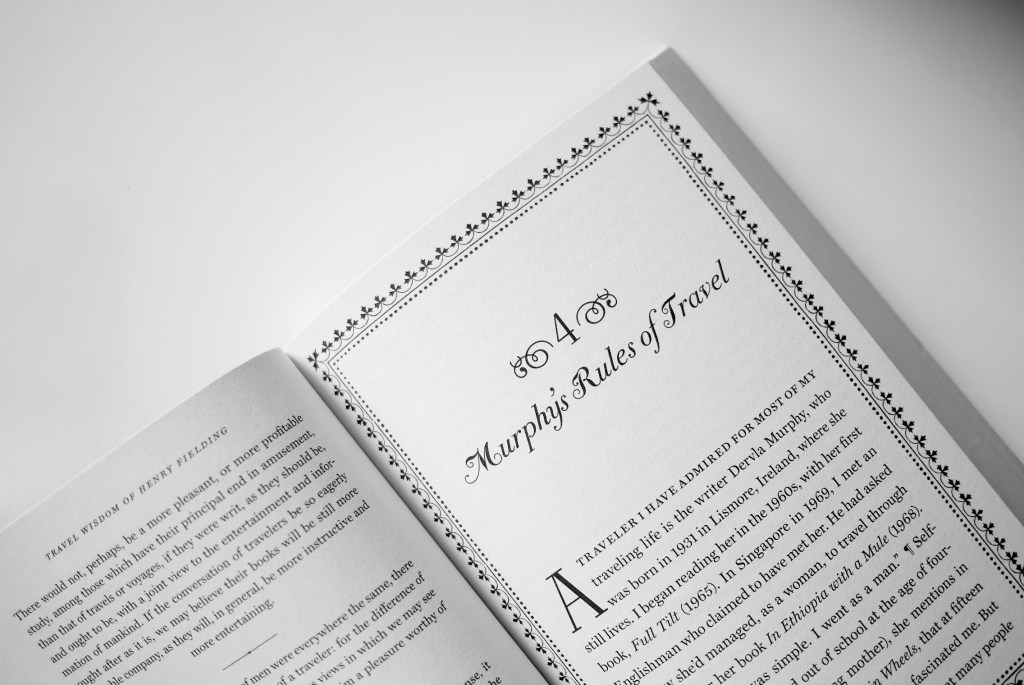 TRAVEL WISDOM OF HENRY FIELDING
There would not, perhaps, be a more pleasant, or more profitable
study, among those which have their principal end in amusement,
than that of travels or voyages, if they were writ, as they should be,
and ought to be, with a joint view to the entertainment and infor-
mation of mankind. If the conversation of travelers be so eagerly
ought after as it is, we may believe their books will be still more
ble company, as they will, in general, be more instructive and
more entertaining.
of men were everywhere the same, there
of a traveler: for the difference of
views in which we may see
m a pleasure worthy of
se, it
be
4
Murphy's Rules of Travel
A TRAVELER I HAVE ADMIRED FOR MOST OF MY
traveling life is the writer Dervla Murphy, who
was born in 1931 in Lismore, Ireland, where she
still lives. I began reading her in the 1960s, with her first
book, Full Tilt (1965). In Singapore in 1969, I met an
Englishman who claimed to have met her. He had asked
she'd managed, as a woman, to travel through
her book In Ethiopia with a Mule (1968).
was simple. I went as a man." ¶ Self-
out of school at the age of four-
ing mother), she mentions in
Wheels, that at fifteen
fascinated me. But
t many people